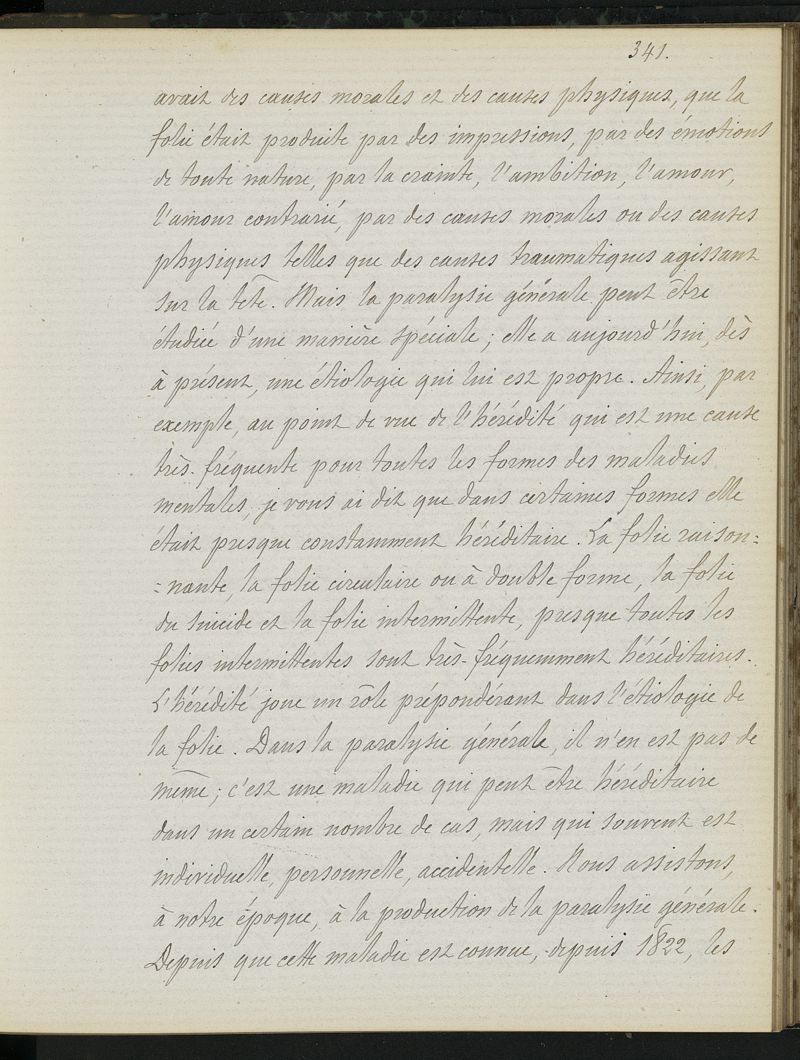 341.
avait des causes morales et des causes physiques, que la
folie était produite par des impressions, par des émotions
de toute nature, par la crainte, l'ambition, l'amour,
l'amour contrarié, par des causes morales ou des causes
physiques telles que des causes traumatiques agissant
sur la tête. Mais la paralysie générale peut être
étudiée d'une manière spéciale ; elle a aujourd'hui, dès
à présent, une étiologie qui lui est propre. Ainsi, par
exemple, au point de vue de l'hérédité qui est une cause
très-fréquente pour toutes les formes des maladies
mentales, je vous ai dit que dans certaines formes elle
était presque constamment héréditaire. La folie raison=
=nante, la folie circulaire ou à double forme, la folie
du suicide et la folie intermittente, presque toutes les
folies intermittentes sont très-fréquemment héréditaires.
L'hérédité joue un rôle prépondérant dans l'étiologie de
la folie. Dans la paralysie générale, il n'en est pas de
même ; c'est une maladie qui peut être héréditaire
dans un certain nombre de cas, mais qui souvent est
individuelle, personnelle, accidentelle. Nous assistons,
à notre époque, à la production de la paralysie générale.
Depuis que cette maladie est connue, depuis 1822, les